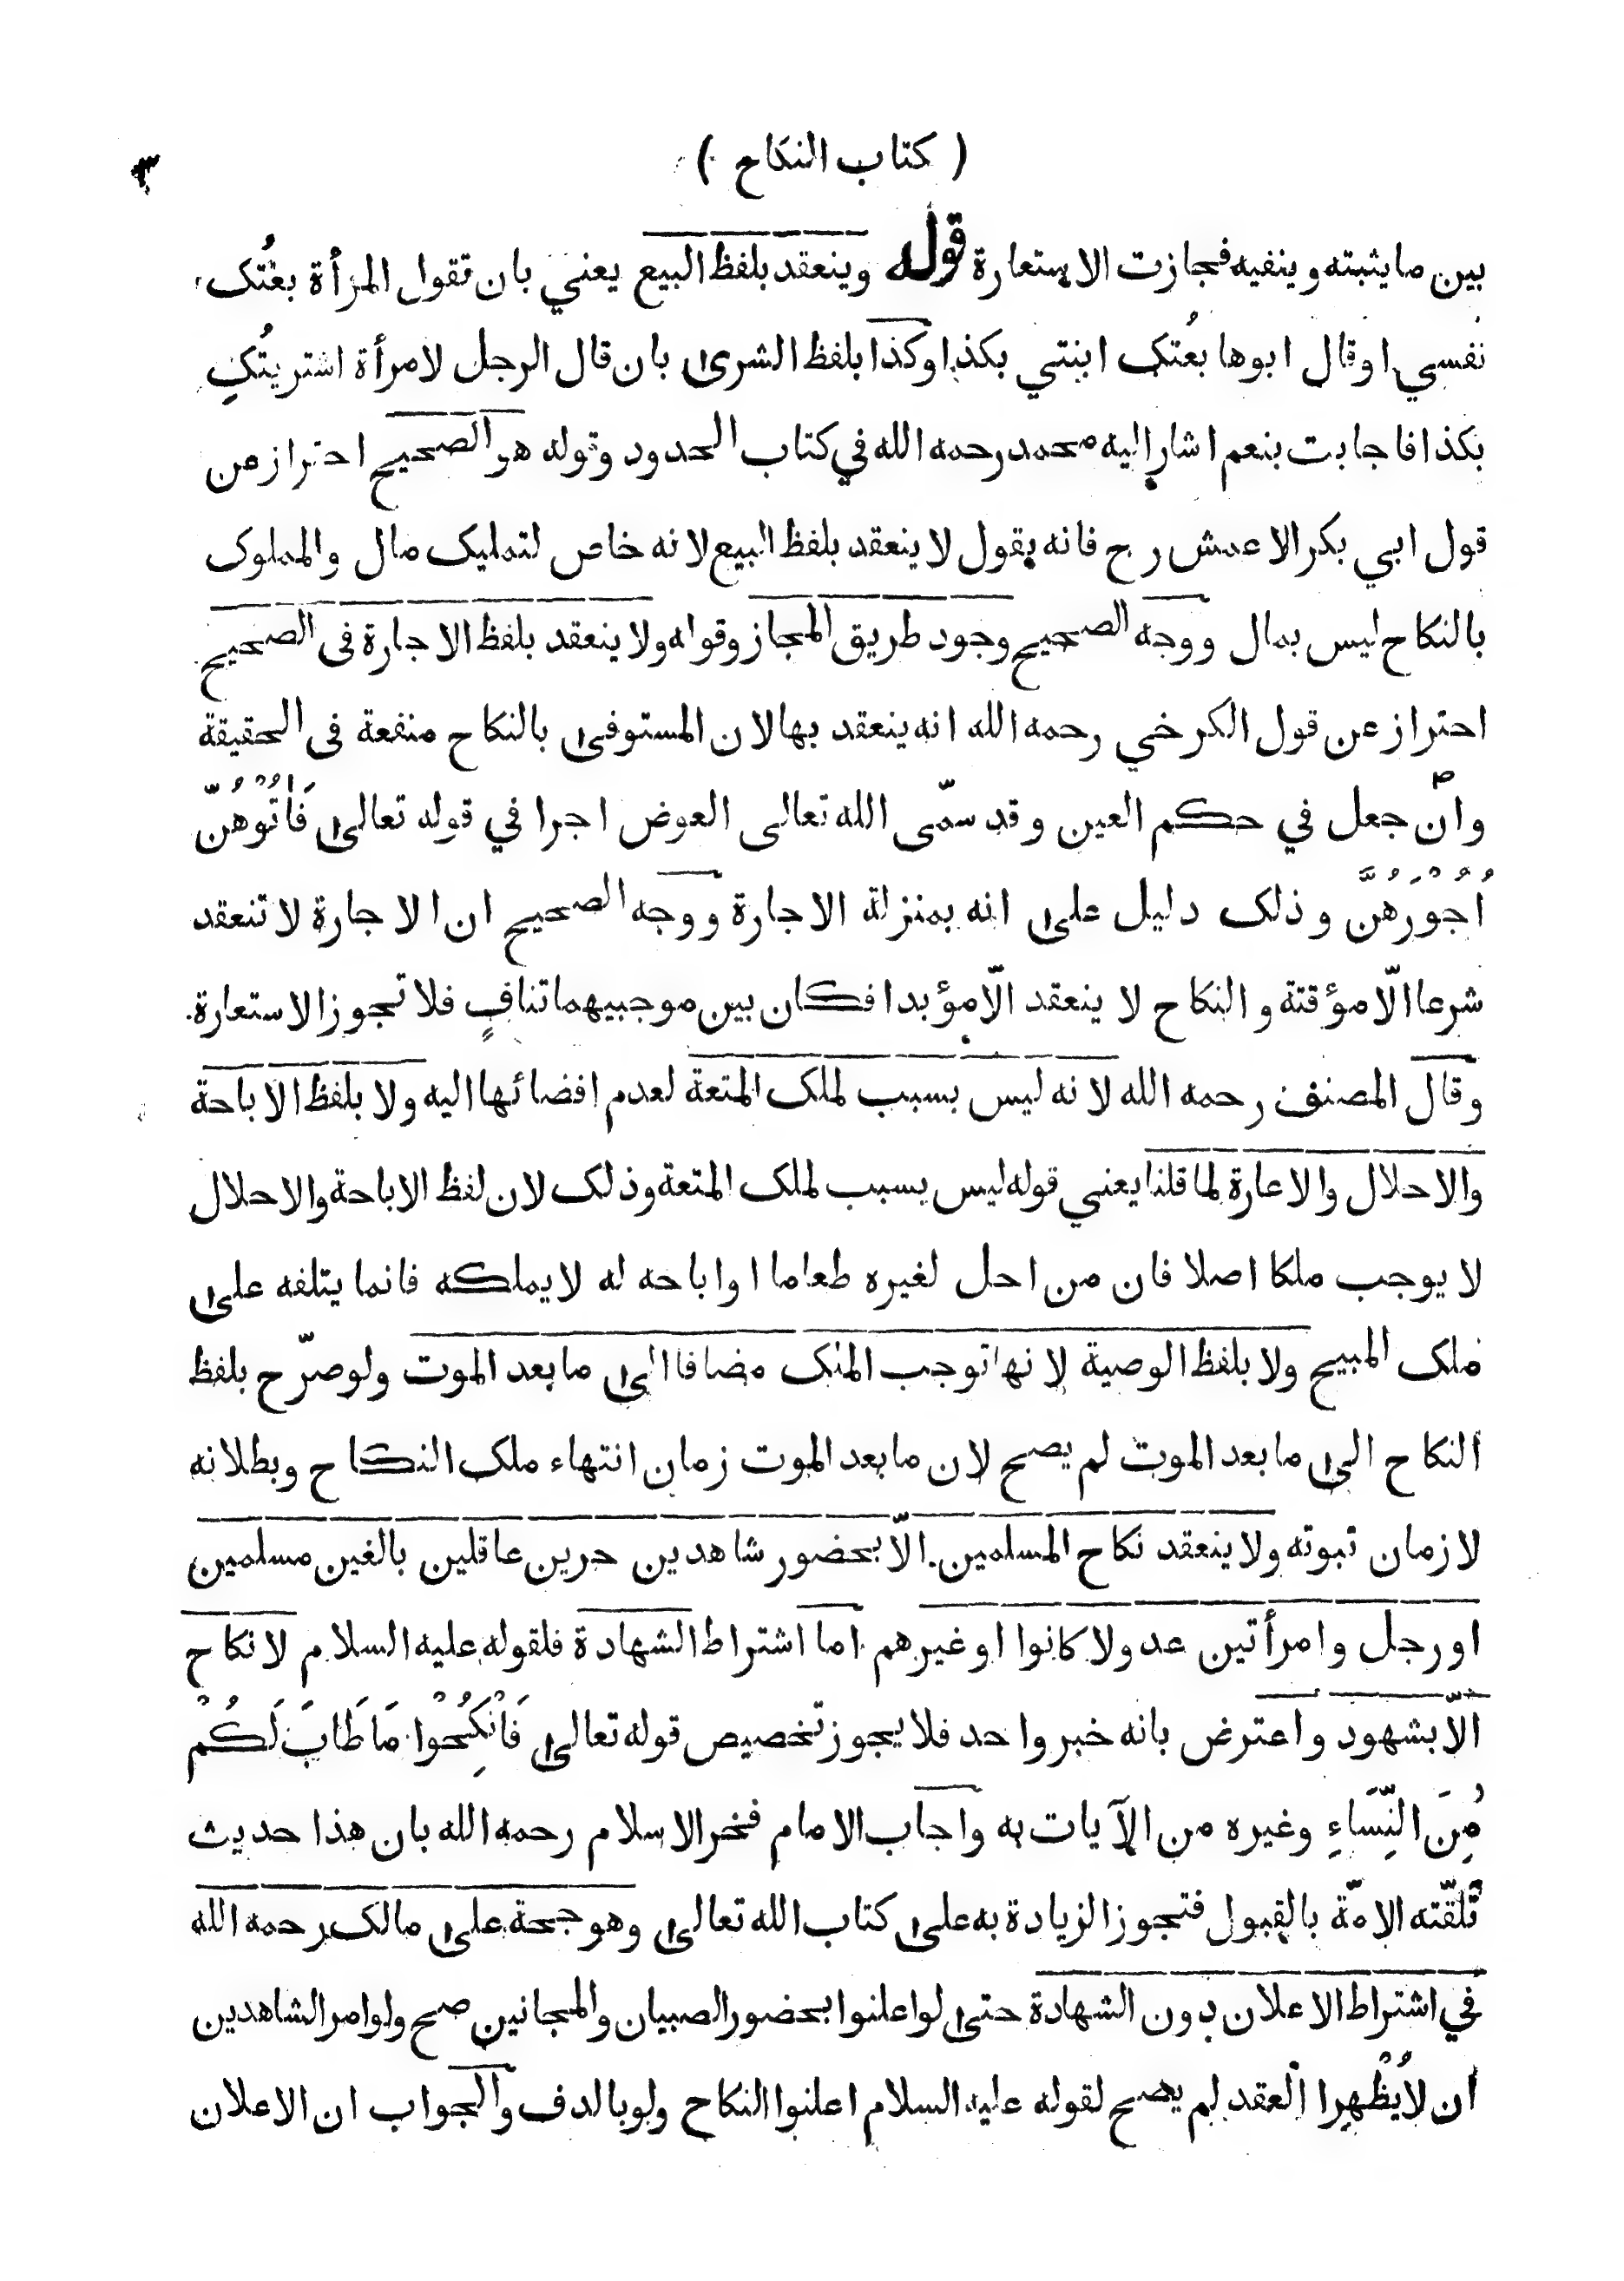 ( كتاب النكاح )
٣
بين ما يثبته وينفيه فجازت الاستعارة قوله وينعقد بلفظ البيع يعني بان تقول المرأة بعْتُك
نفسي او قال ابوها بعْتُك ابنتي بكذا وكذا بلفظ الشرى بان قال الرجل لامرأة اشتريتُكِ
بكذا فاجابت بنعم اشار اليه محمد رحمه الله في كتاب الحدود وقوله هو الصحيح احتراز من
قول ابي بكر الاعمش رح فانه يقول لا ينعقد بلفظ البيع لانه خاص لتمليك مال والمملوك
بالنكاح ليس بمال ووجه الصحيح وجود طريق المجاز وقوله ولا ينعقد بلفظ الاجارة فى الصحيح
احتراز عن قول الكرخي رحمه الله انه ينعقد بها لان المستوفى بالنكاح منفعة فى الحقيقة
وان جعل في حكم العين وقد سمّى الله تعالى العوض اجرا في قوله تعالى فَاٰتُوْهُنَّ
اُجُوْرَهُنَّ وذلك دليل على انه بمنزلة الاجارة ووجه الصحيح ان الاجارة لا تنعقد
شرعا الّا مؤقتة والنكاح لا ينعقد الّا مؤبدا فكان بين موجبيهما تنافٍ فلا تجوز الاستعارة.
وقال المصنف رحمه الله لانه ليس بسبب لملك المتعة لعدم افضائها اليه ولا بلفظ الاباحة
والاحلال والاعارة لما قلنا يعني قوله ليس بسبب لملك المتعة وذلك لان لفظ الاباحة والاحلال
لا يوجب ملكا اصلا فان من احل لغيره طعاما او اباحه له لا يملكه فانما يتلفه على
ملك المبيح ولا بلفظ الوصية لانها توجب الملك مضافا الى ما بعد الموت ولو صرّح بلفظ
النكاح الى ما بعد الموت لم يصح لان ما بعد الموت زمان انتهاء ملك النكاح وبطلانه
لا زمان ثبوته ولا ينعقد نكاح المسلمين الّا بحضور شاهدين حرين عاقلين بالغين مسلمين
او رجل وامرأتين عدولا كانوا او غيرهم اما اشتراط الشهادة فلقوله عليه السلام لا نكاح
الّا بشهود واعترض بانه خبر واحد فلا يجوز تخصيص قوله تعالى فَانْكِحُوْا مَا طَابَ لَكُمْ
مِنَ النِّسَاءِ وغيره من الآيات به واجاب الامام فخر الاسلام رحمه الله بان هذا حديث
تلقّته الامّة بالقبول فتجوز الزيادة به على كتاب الله تعالى وهو حجة على مالك رحمه الله
في اشتراط الاعلان دون الشهادة حتى لو اعلنوا بحضور الصبيان والمجانين صح ولو امر الشاهدين
ان لا يُظْهِرا العقد لم يصح لقوله عليه السلام اعلنوا النكاح ولو بالدف والجواب ان الاعلان